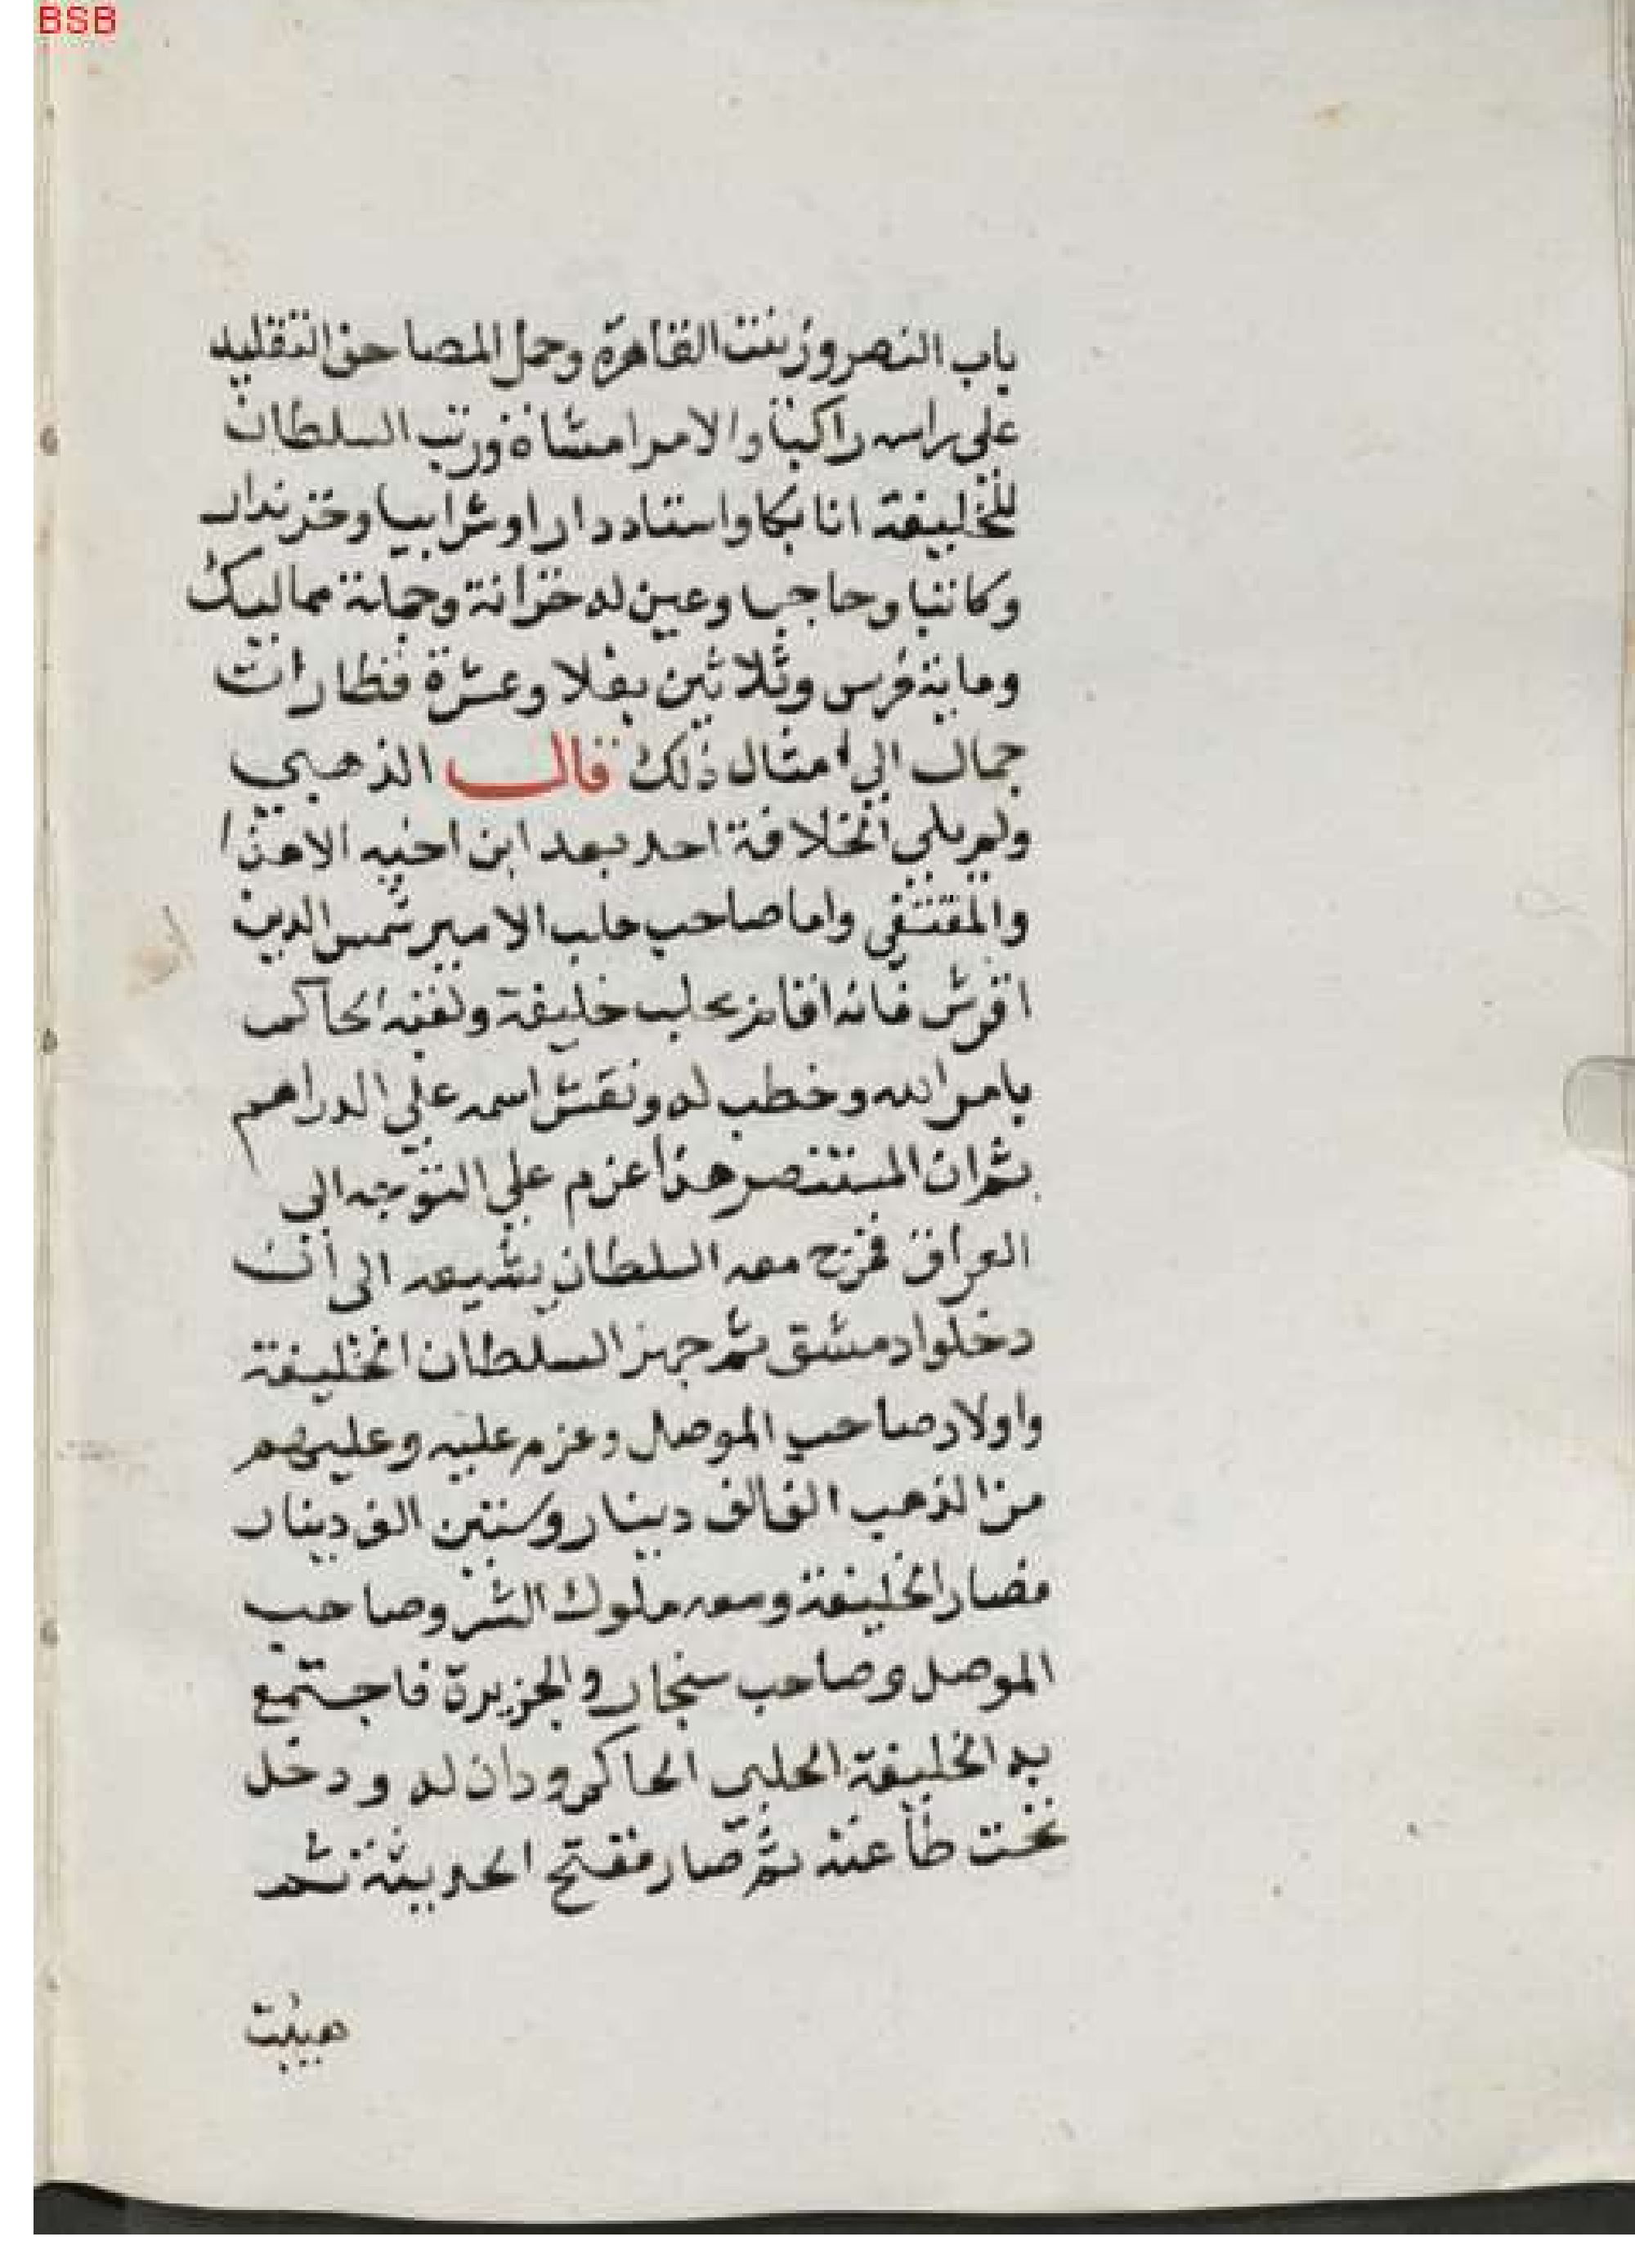 BSB
باب النصر وزينت القاهرة وحمل المصاحف التقليد
على راسه راكبا والامرا مشاة ورتب السلطان
للخليفة اتابكا واستاددارا وشرابيا وخزندار
وكاتبا وحاجبا وعين له خزانة وجملة مماليك
وماية فرس وثلاثين بغلا وعشرة قطارات
جمال الى امثال ذلك قال الذهبي
ولم يلي الخلافة احد بعد ابن اخيه الا هذا
والمقتفى واما صاحب حلب الامير شمس الدين
اقوش فانه اقام بحلب خليفة ولقبه الحاكم
بامر الله وخطب له ونقش اسمه علي الدراهم
ثم ان المستنصر هذا عزم علي التوجه الى
العراق فخرج معه السلطان يشيعه الى ان
دخلوا دمشق ثم جهز السلطان الخليفة
واولاد صاحب الموصل وعزم عليه وعليهم
من الذهب الف الف دينار وستين الف دينار
فصار الخليفة ومعه ملوك الشر وصاحب
الموصل وصاحب سنجار والجزيرة فاجتمع
به الخليفة الحلبي الحاكم ودان له ودخل
تحت طاعته ثم صار ففتح الحديثة ثم
هييت